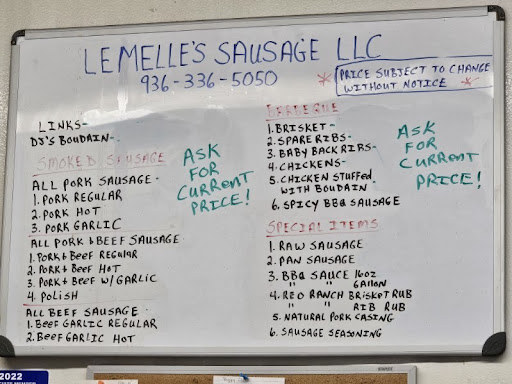 LEMELLE'S SAUSAGE LLC
936-336-5050
* PRICE SUBJECT TO CHANGE
WITHOUT NOTICE *
LINKS-
DJ'S BOUDAIN-
SMOKED SAUSAGE
ALL PORK SAUSAGE-
1. PORK REGULAR
2. PORK HOT
3. PORK GARLIC
ALL PORK & BEEF SAUSAGE
1. PORK & BEEF REGULAR
2. PORK & BEEF HOT
3. PORK & BEEF W/ GARLIC
4. POLISH
ALL BEEF SAUSAGE-
1. BEEF GARLIC REGULAR
2. BEEF GARLIC HOT
ASK
FOR
CURRENT
PRICE!
BARBEQUE
1. BRISKET-
2. SPARE RIBS-
3. BABY BACK RIBS-
4. CHICKENS-
5. CHICKEN STUFFED
WITH BOUDAIN
6. SPICY BBQ SAUSAGE
ASK
FOR
CURRENT
PRICE!
SPECIAL ITEMS
1. RAW SAUSAGE
2. PAN SAUSAGE
3. BBQ SAUCE 16oz
" " GALLON
4. RED RANCH BRISKET RUB
" " RIB RUB
5. NATURAL PORK CASING
6. SAUSAGE SEASONING
2022